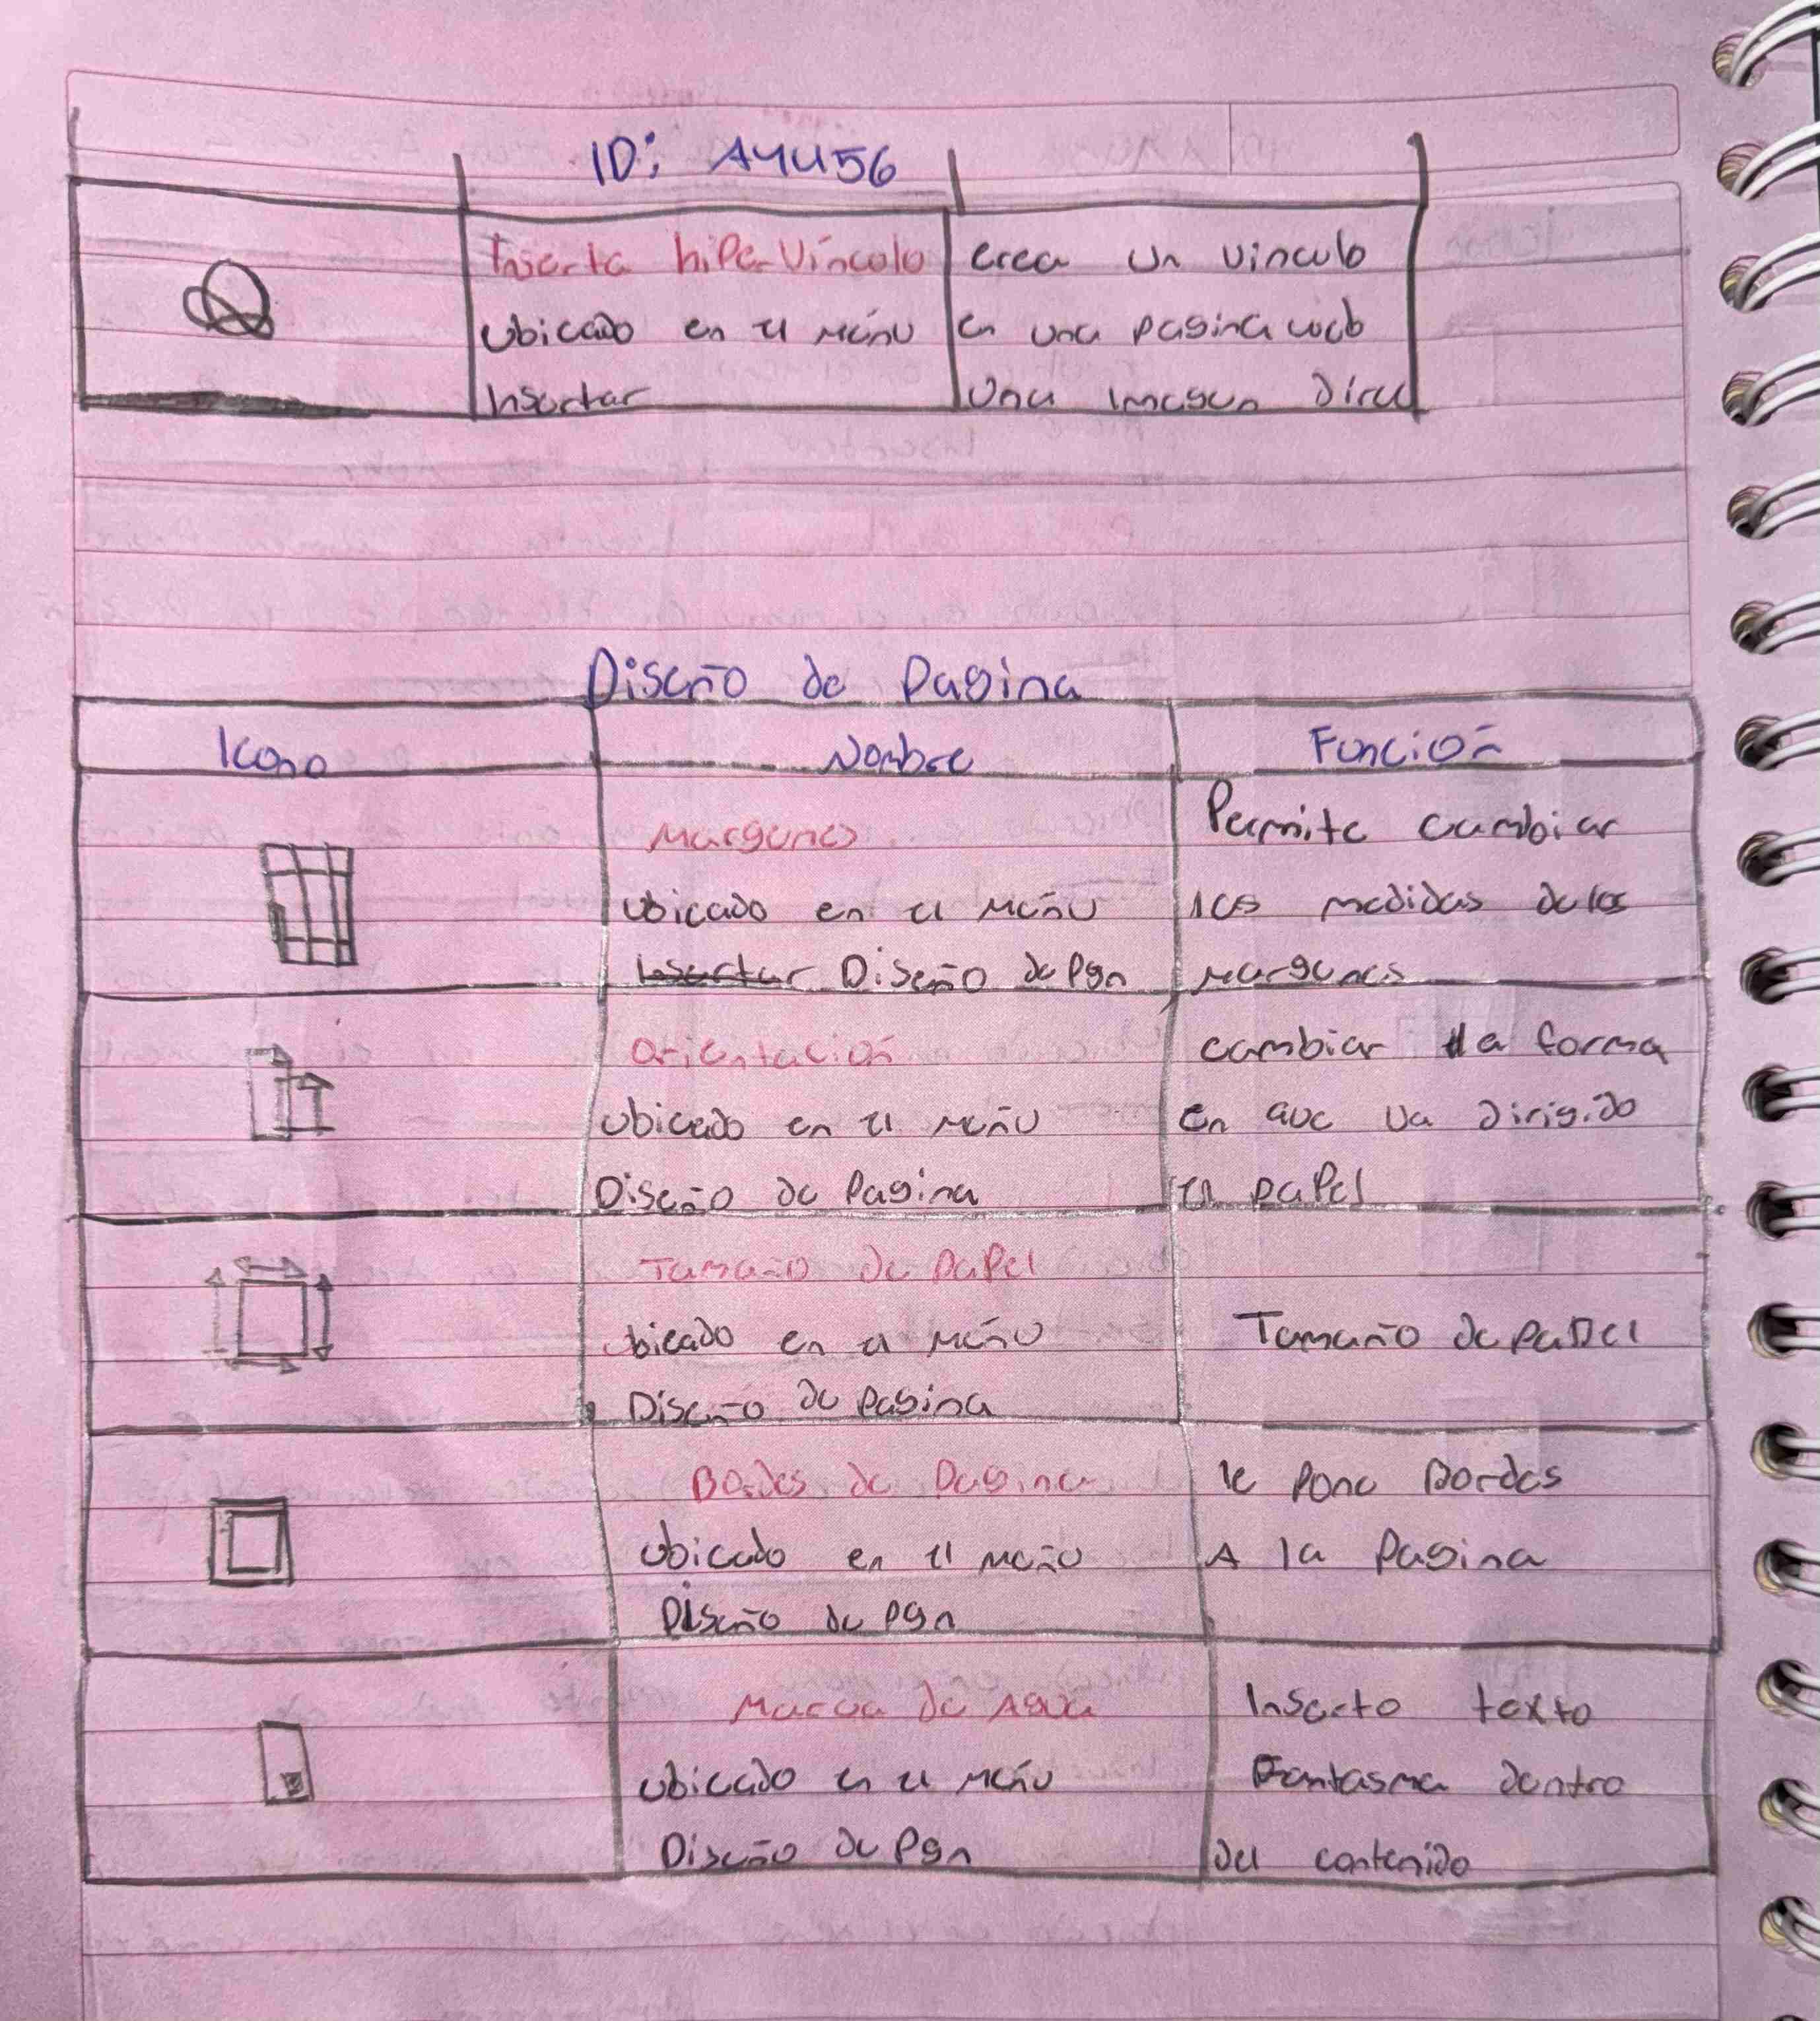 ID: A4U56
Inserta hiperVínculo
Ubicado en el menú
Insertar
crea un vinculo
en una pagina web
una imagen direc
Diseño de Pagina
Icono
Nombre
Función
Margenes
Ubicado en el menú
Insertar Diseño de Pgn
Permite cambiar
las medidas de los
margenes
Orientación
Ubicado en el menú
Diseño de Pagina
cambiar la forma
en que va dirigido
el papel
Tamaño de papel
Ubicado en el menú
Diseño de pagina
Tamaño de papel
Bordes de Pagina
Ubicado en el menú
Diseño de pgn
le pone Bordes
A la Pagina
Marca de Agua
Ubicado en el menú
Diseño de Pgn
Inserto texto
Fantasma dentro
del contenido